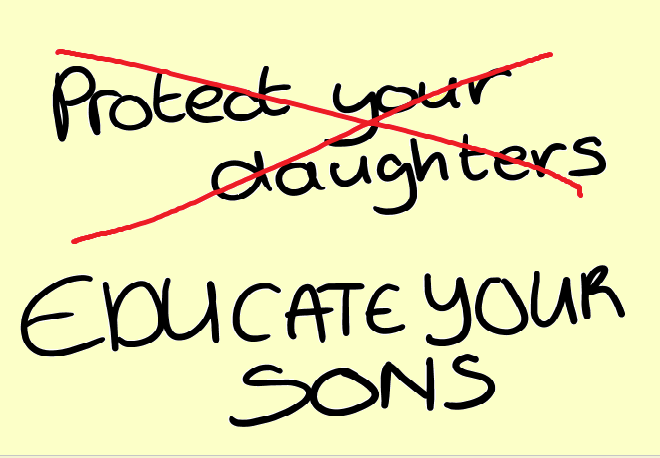 Protect your
daughters
EDUCATE YOUR
SONS